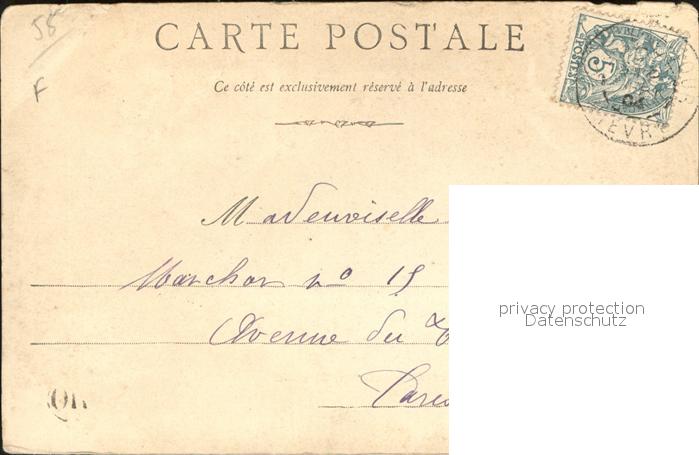 58
F
CARTE POSTALE
Ce côté est exclusivement réservé à l'adresse
5
POSTES
Mademoiselle
Marchar nº 15
Avenue du
Paris
privacy protection
Datenschutz